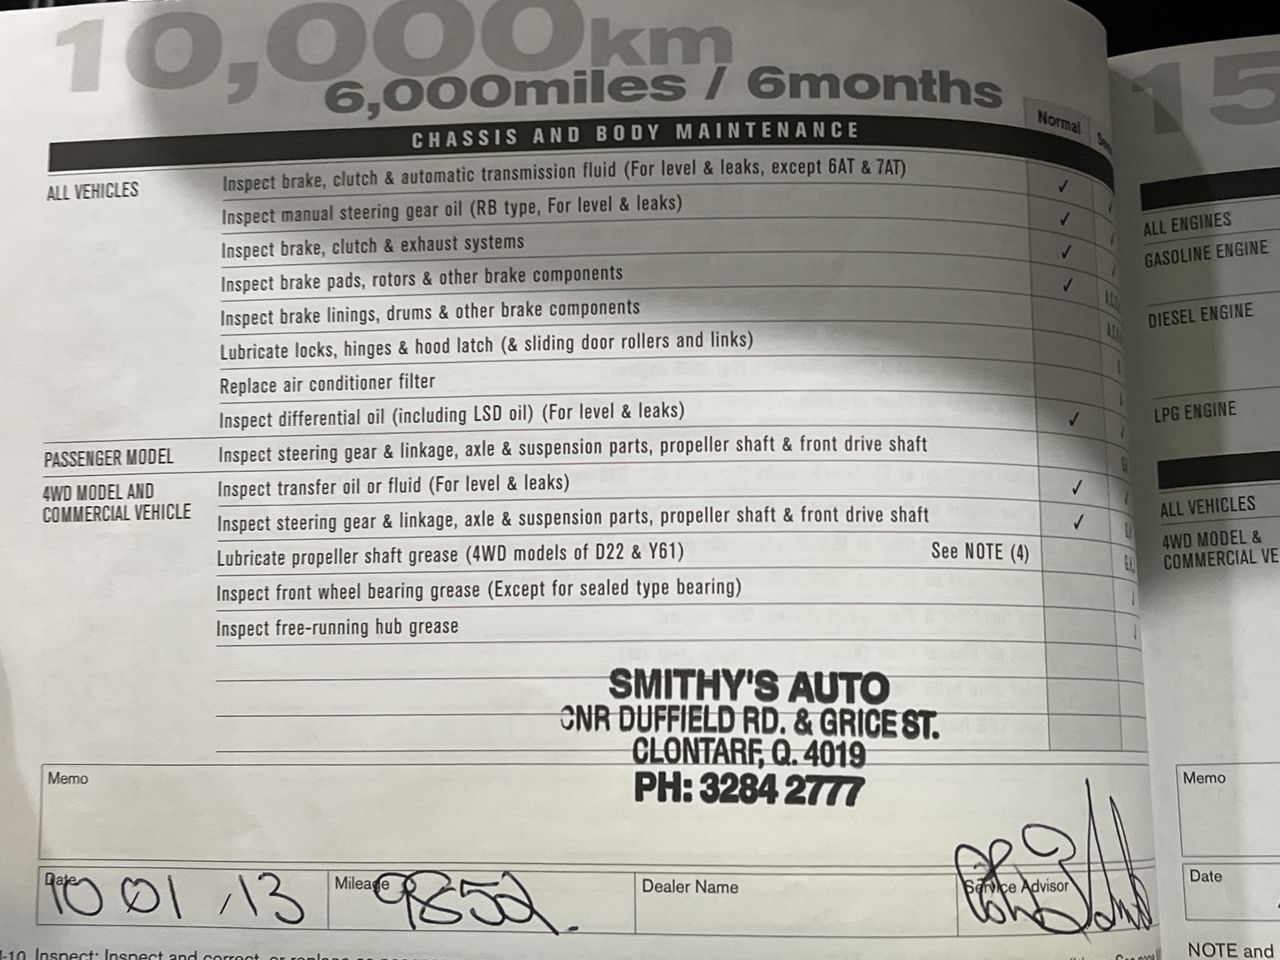 10,000km
6,000miles / 6months
CHASSIS AND BODY MAINTENANCE
Normal
ALL VEHICLES
Inspect brake, clutch & automatic transmission fluid (For level & leaks, except 6AT & 7AT) ✓
Inspect manual steering gear oil (RB type, For level & leaks) ✓
Inspect brake, clutch & exhaust systems ✓
Inspect brake pads, rotors & other brake components ✓
Inspect brake linings, drums & other brake components
Lubricate locks, hinges & hood latch (& sliding door rollers and links)
Replace air conditioner filter
Inspect differential oil (including LSD oil) (For level & leaks) ✓
PASSENGER MODEL
Inspect steering gear & linkage, axle & suspension parts, propeller shaft & front drive shaft
4WD MODEL AND
COMMERCIAL VEHICLE
Inspect transfer oil or fluid (For level & leaks) ✓
Inspect steering gear & linkage, axle & suspension parts, propeller shaft & front drive shaft ✓
Lubricate propeller shaft grease (4WD models of D22 & Y61) See NOTE (4)
Inspect front wheel bearing grease (Except for sealed type bearing)
Inspect free-running hub grease
SMITHY'S AUTO
CNR DUFFIELD RD. & GRICE ST.
CLONTARF, Q. 4019
PH: 3284 2777
Memo
Date 10 01 /13
Mileage 9852
Dealer Name
Service Advisor
15
ALL ENGINES
GASOLINE ENGINE
DIESEL ENGINE
LPG ENGINE
ALL VEHICLES
4WD MODEL &
COMMERCIAL VE
Memo
Date
NOTE and